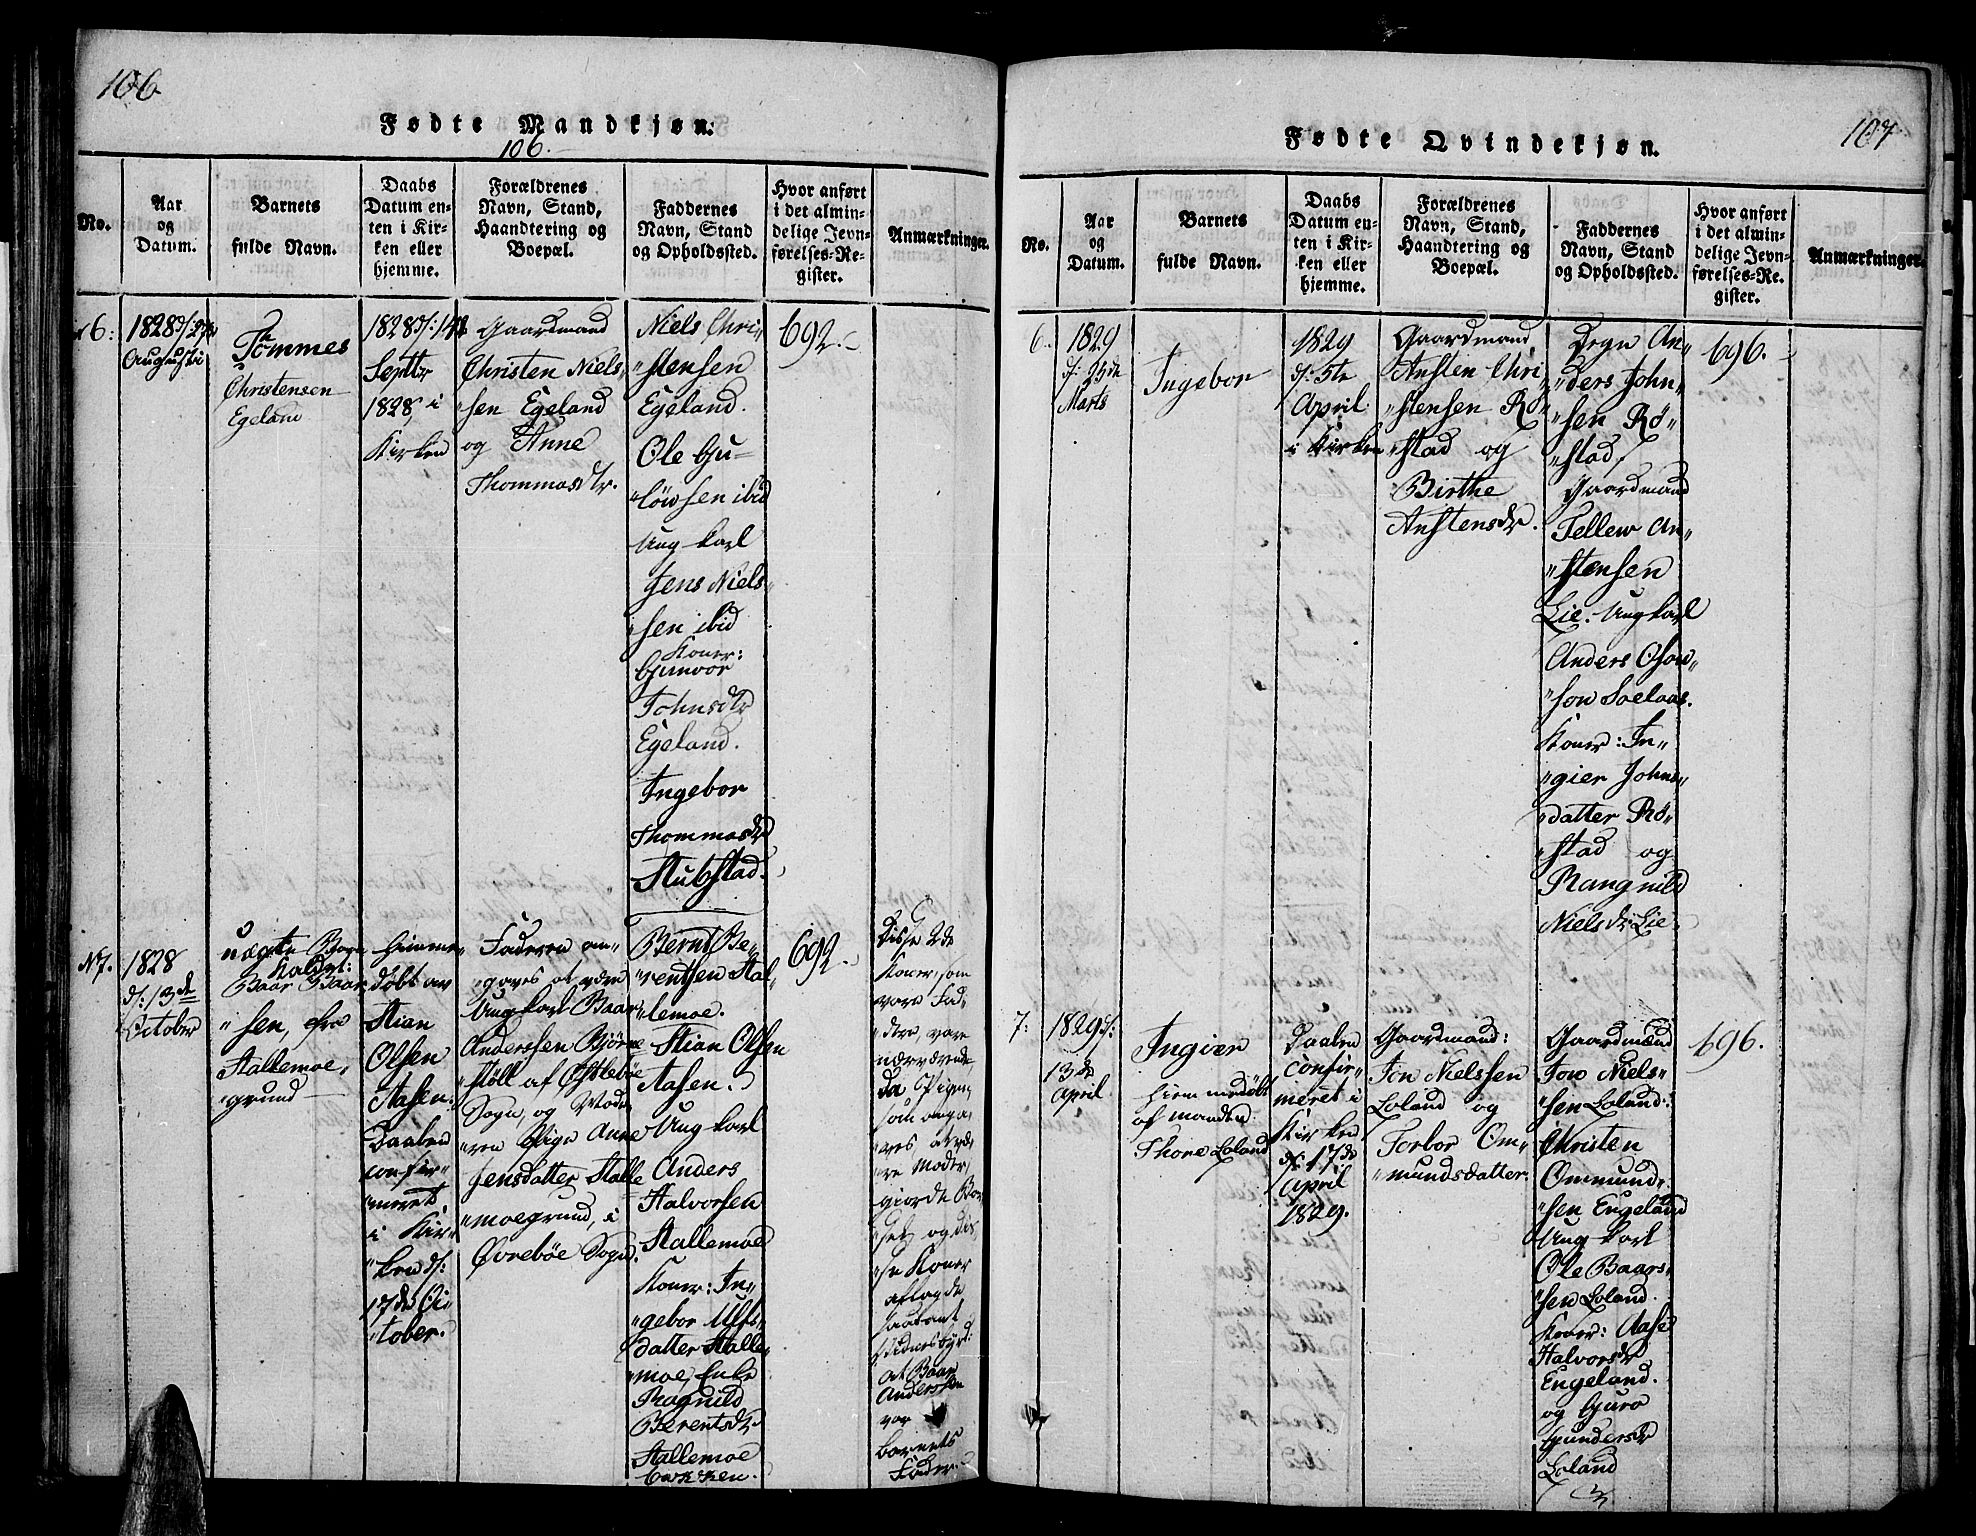 106
Fødte Mandkjøn.
106.
No.
Aar
og
Datum.
Barnets
fulde Navn.
Daabs
Datum en-
ten i Kir-
ken eller
hjemme.
Forældrenes
Navn, Stand,
Haandtering og
Boepæl.
Faddernes
Navn, Stand
og Opholdssted.
Hvor anført
i det almin-
delige Jevn-
førelses-Re-
gister.
Anmærkninger.
16:
1828 d:
Augusti
Tommes
Christensen
Egeland
1828 d: 14
Septbr
1828, i
Kirken
Gaardmand
Christen Niels,,
"sen Egeland
og Anne
Thommasdtr.
Niels Chri"
"stensen
Egeland.
Ole Gu=
"löwsen ibid
Ung karl
Jens Niels"
"sen ibid
Koner:
Gunvor
Johnsdtr
Egeland.
Ingebor
Thommasdtr
Stubstad.
692.
N7.
1828
d: 13de
October
uægte
Kaldet:
Baar Baar
"sen, fra
Stallemoe,
grund
Himme"
døbt av
Stian
Olsen
Aasen.
Daaben
confir"
"meret
i Kir"
"ken d:
17de Oc"
"tober.
Faderen an"
"gaves at være
Ung karl Baar
Anderssen Bjørne
"støll af Østlebøe
Sogn, og Mode"
"ren Pige Anne
Jensdatter Stalle
"moegrund, i
Øvrebøe Sogn.
Bernt Be"
"rentsen Stal"
"lemoe.
Stian Olsen
Aasen.
Ung karl
Anders
Halvorsen
Stallemoe
Koner: In"
"gebor Ulfs"
datter Stalle"
"moe, Enke
Ragnild
Berentsdtr
Stallemoe
692.
Disse 2de
Koner, som
vare Fad"
"dre, vare
nærværende,
da Pigen,
som anga"
"ves at væ"
"re Moder,
giorde Bar"
"sel, og dis"
"se Koner
aflagde
saadant
Vidnesbyrd:
at Baar
Anderssen
var
barnets
Fader.
107
Fødte Qvindekjøn.
No.
Aar
og
Datum.
Barnets
fulde Navn.
Daabs
Datum en-
ten i Kir-
ken eller
hjemme.
Forældrenes
Navn, Stand,
Haandtering og
Boepæl.
Faddernes
Navn, Stand
og Opholdssted.
Hvor anført
i det almin-
delige Jevn-
førelses-Re-
gister.
Anmærkninger.
6.
1829
d: 25de
Marts
Ingebor
1829
d: 5te
April
i Kirken
Gaardmand
Ansten Chri"
"stensen Rø"
"stad og
Birthe
Anstensdtr.
Degn An"
"ders John"
"sen Rø"
"stad,
Gaardmand
Tellew An"
"stensen
Lie. Ung karl
Anders Osow"
"son Soelaas.
Koner: In"
"gier Johns"
"datter Rø"
"stad og
Rangnild
Nielsdtr Lie.
696.
7:
1829 d:
13de
April
Ingier
Hiemmedøbt
af manden
Thore Loland
Daaben
confir"
meret i
Kirken
d: 17de
April
1829.
Gaardmand:
Jon Nielssen
Loland og
Torbor Om"
"mundsdatter.
Gaardmænd
Jon Niels"
"sen Loland:
Christen
Ommund"
"sen Engeland
Ung karl
Ole Baars"
"sen Loland.
Koner: Aase
Halvorsdtr
Engeland.
og Guro
Gundersdtr
Loland
696.